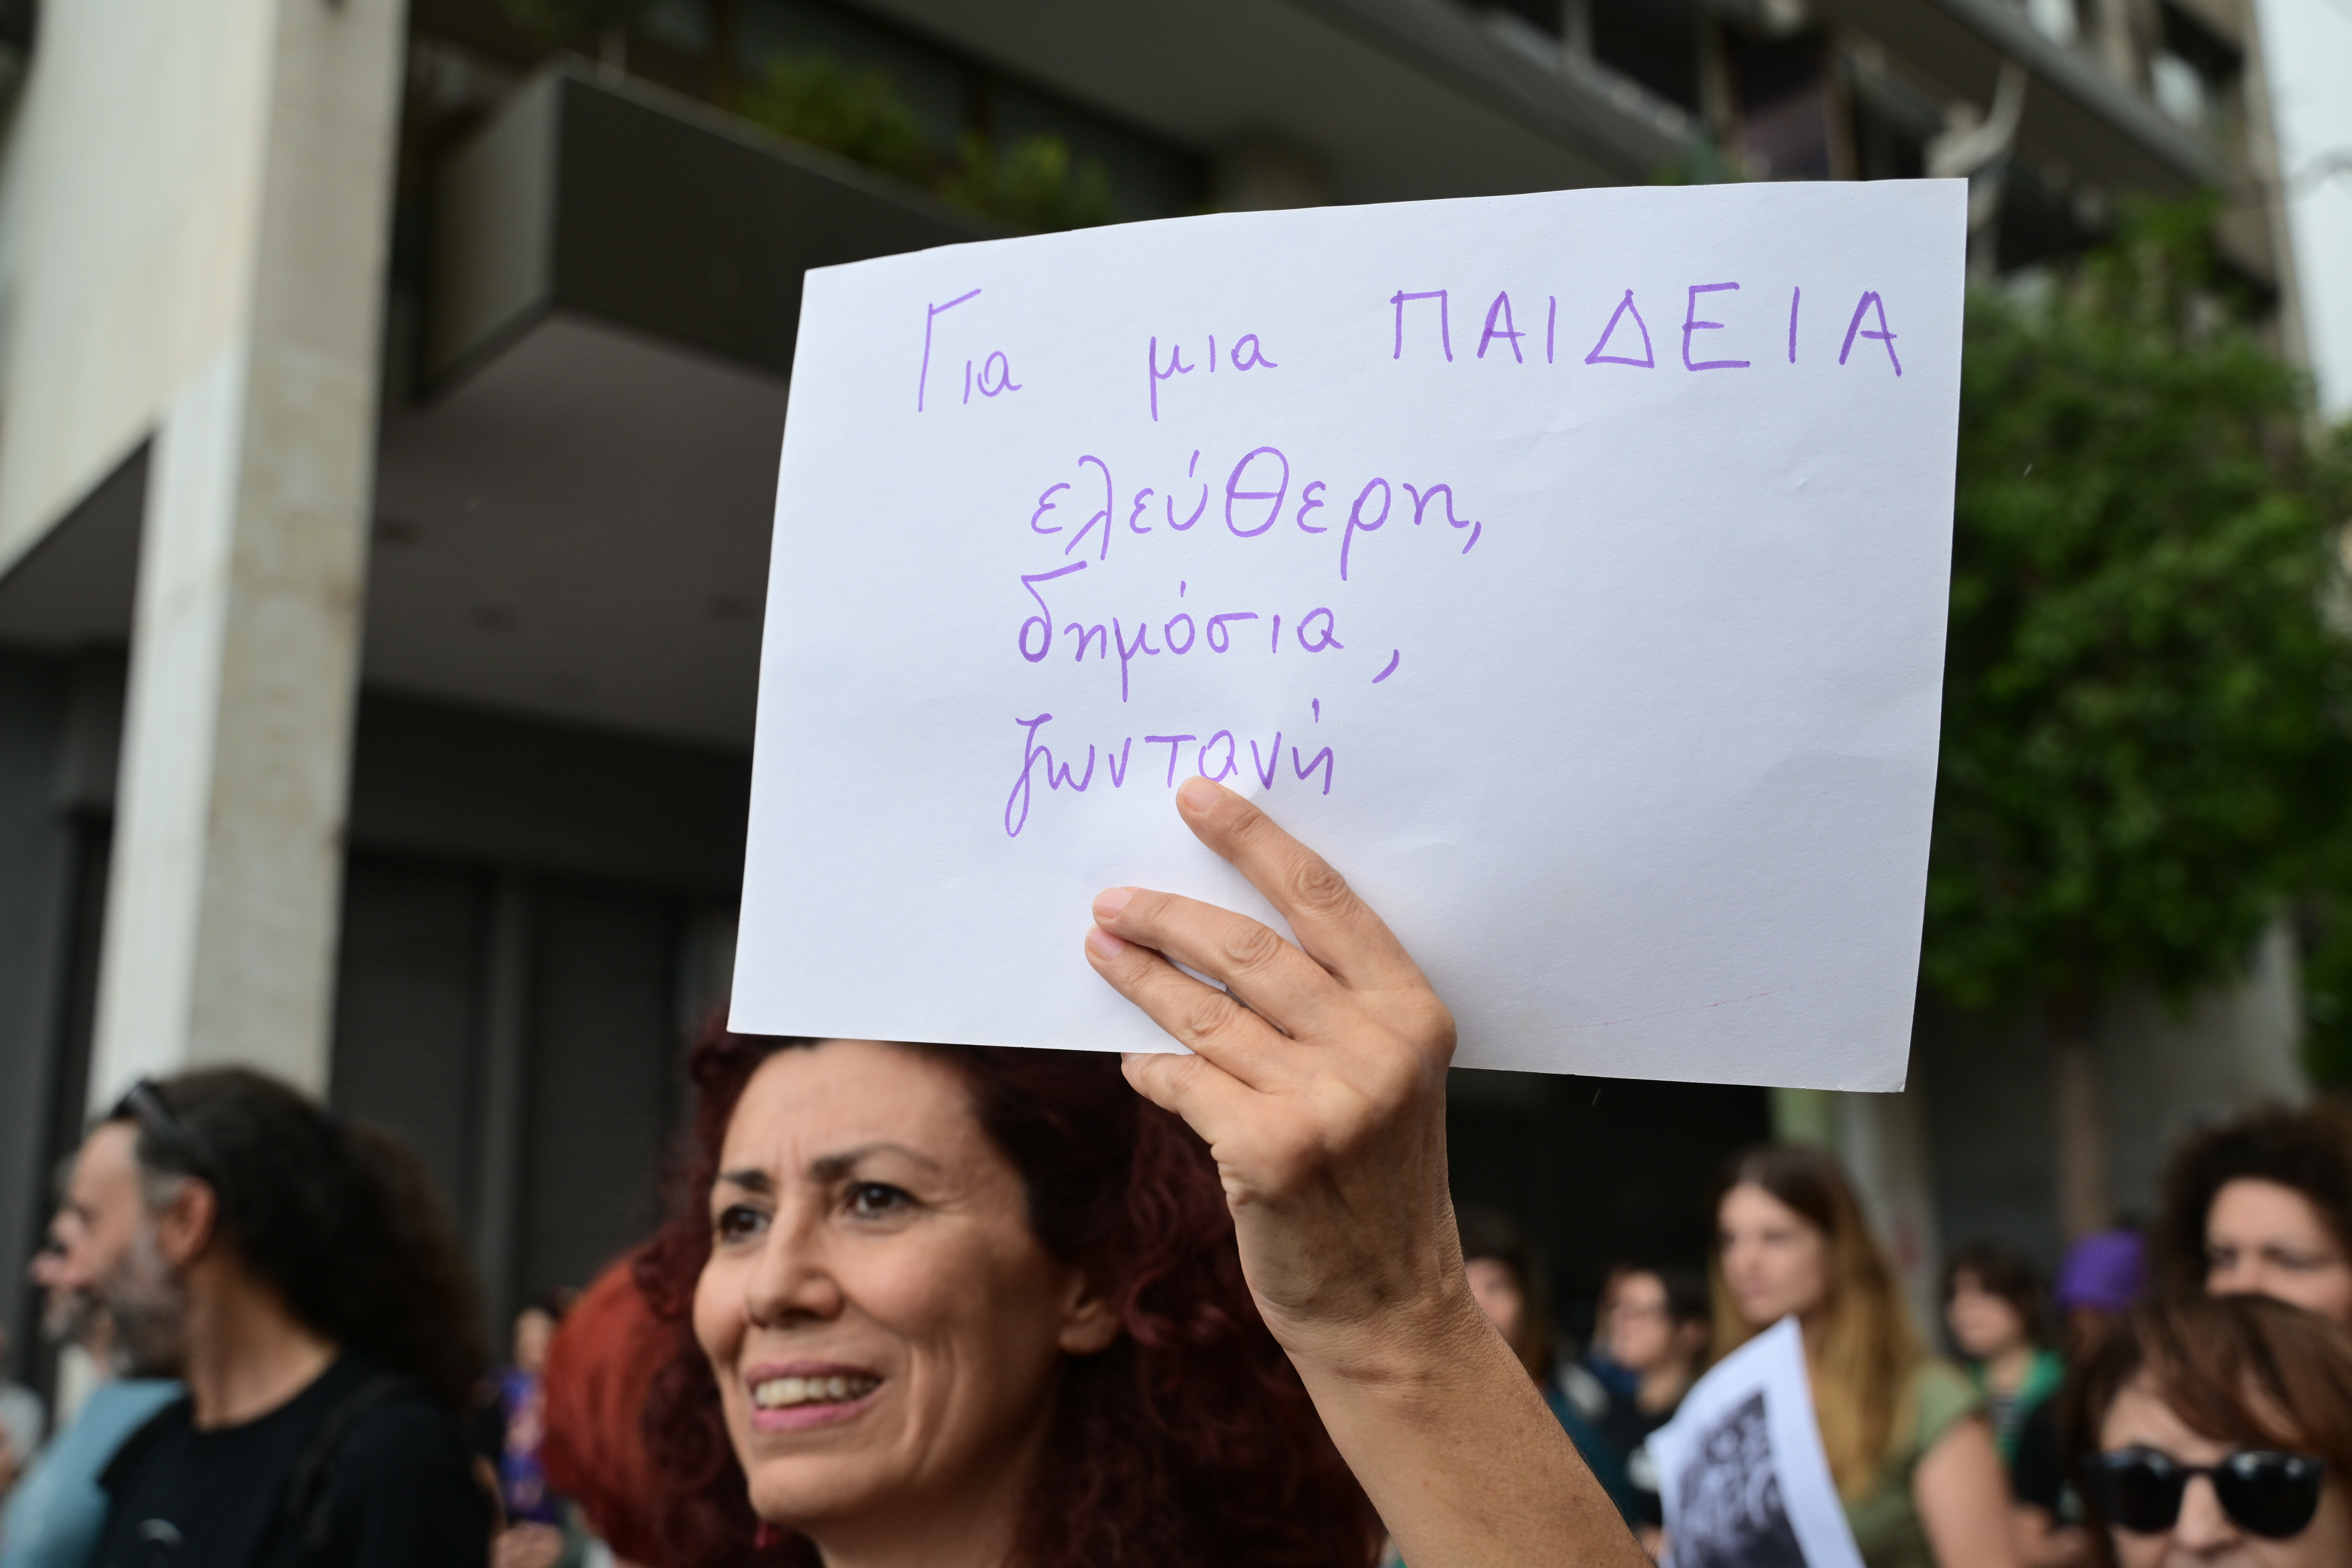 Για μια ΠΑΙΔΕΙΑ
ελεύθερη,
δημόσια,
ζωντανή